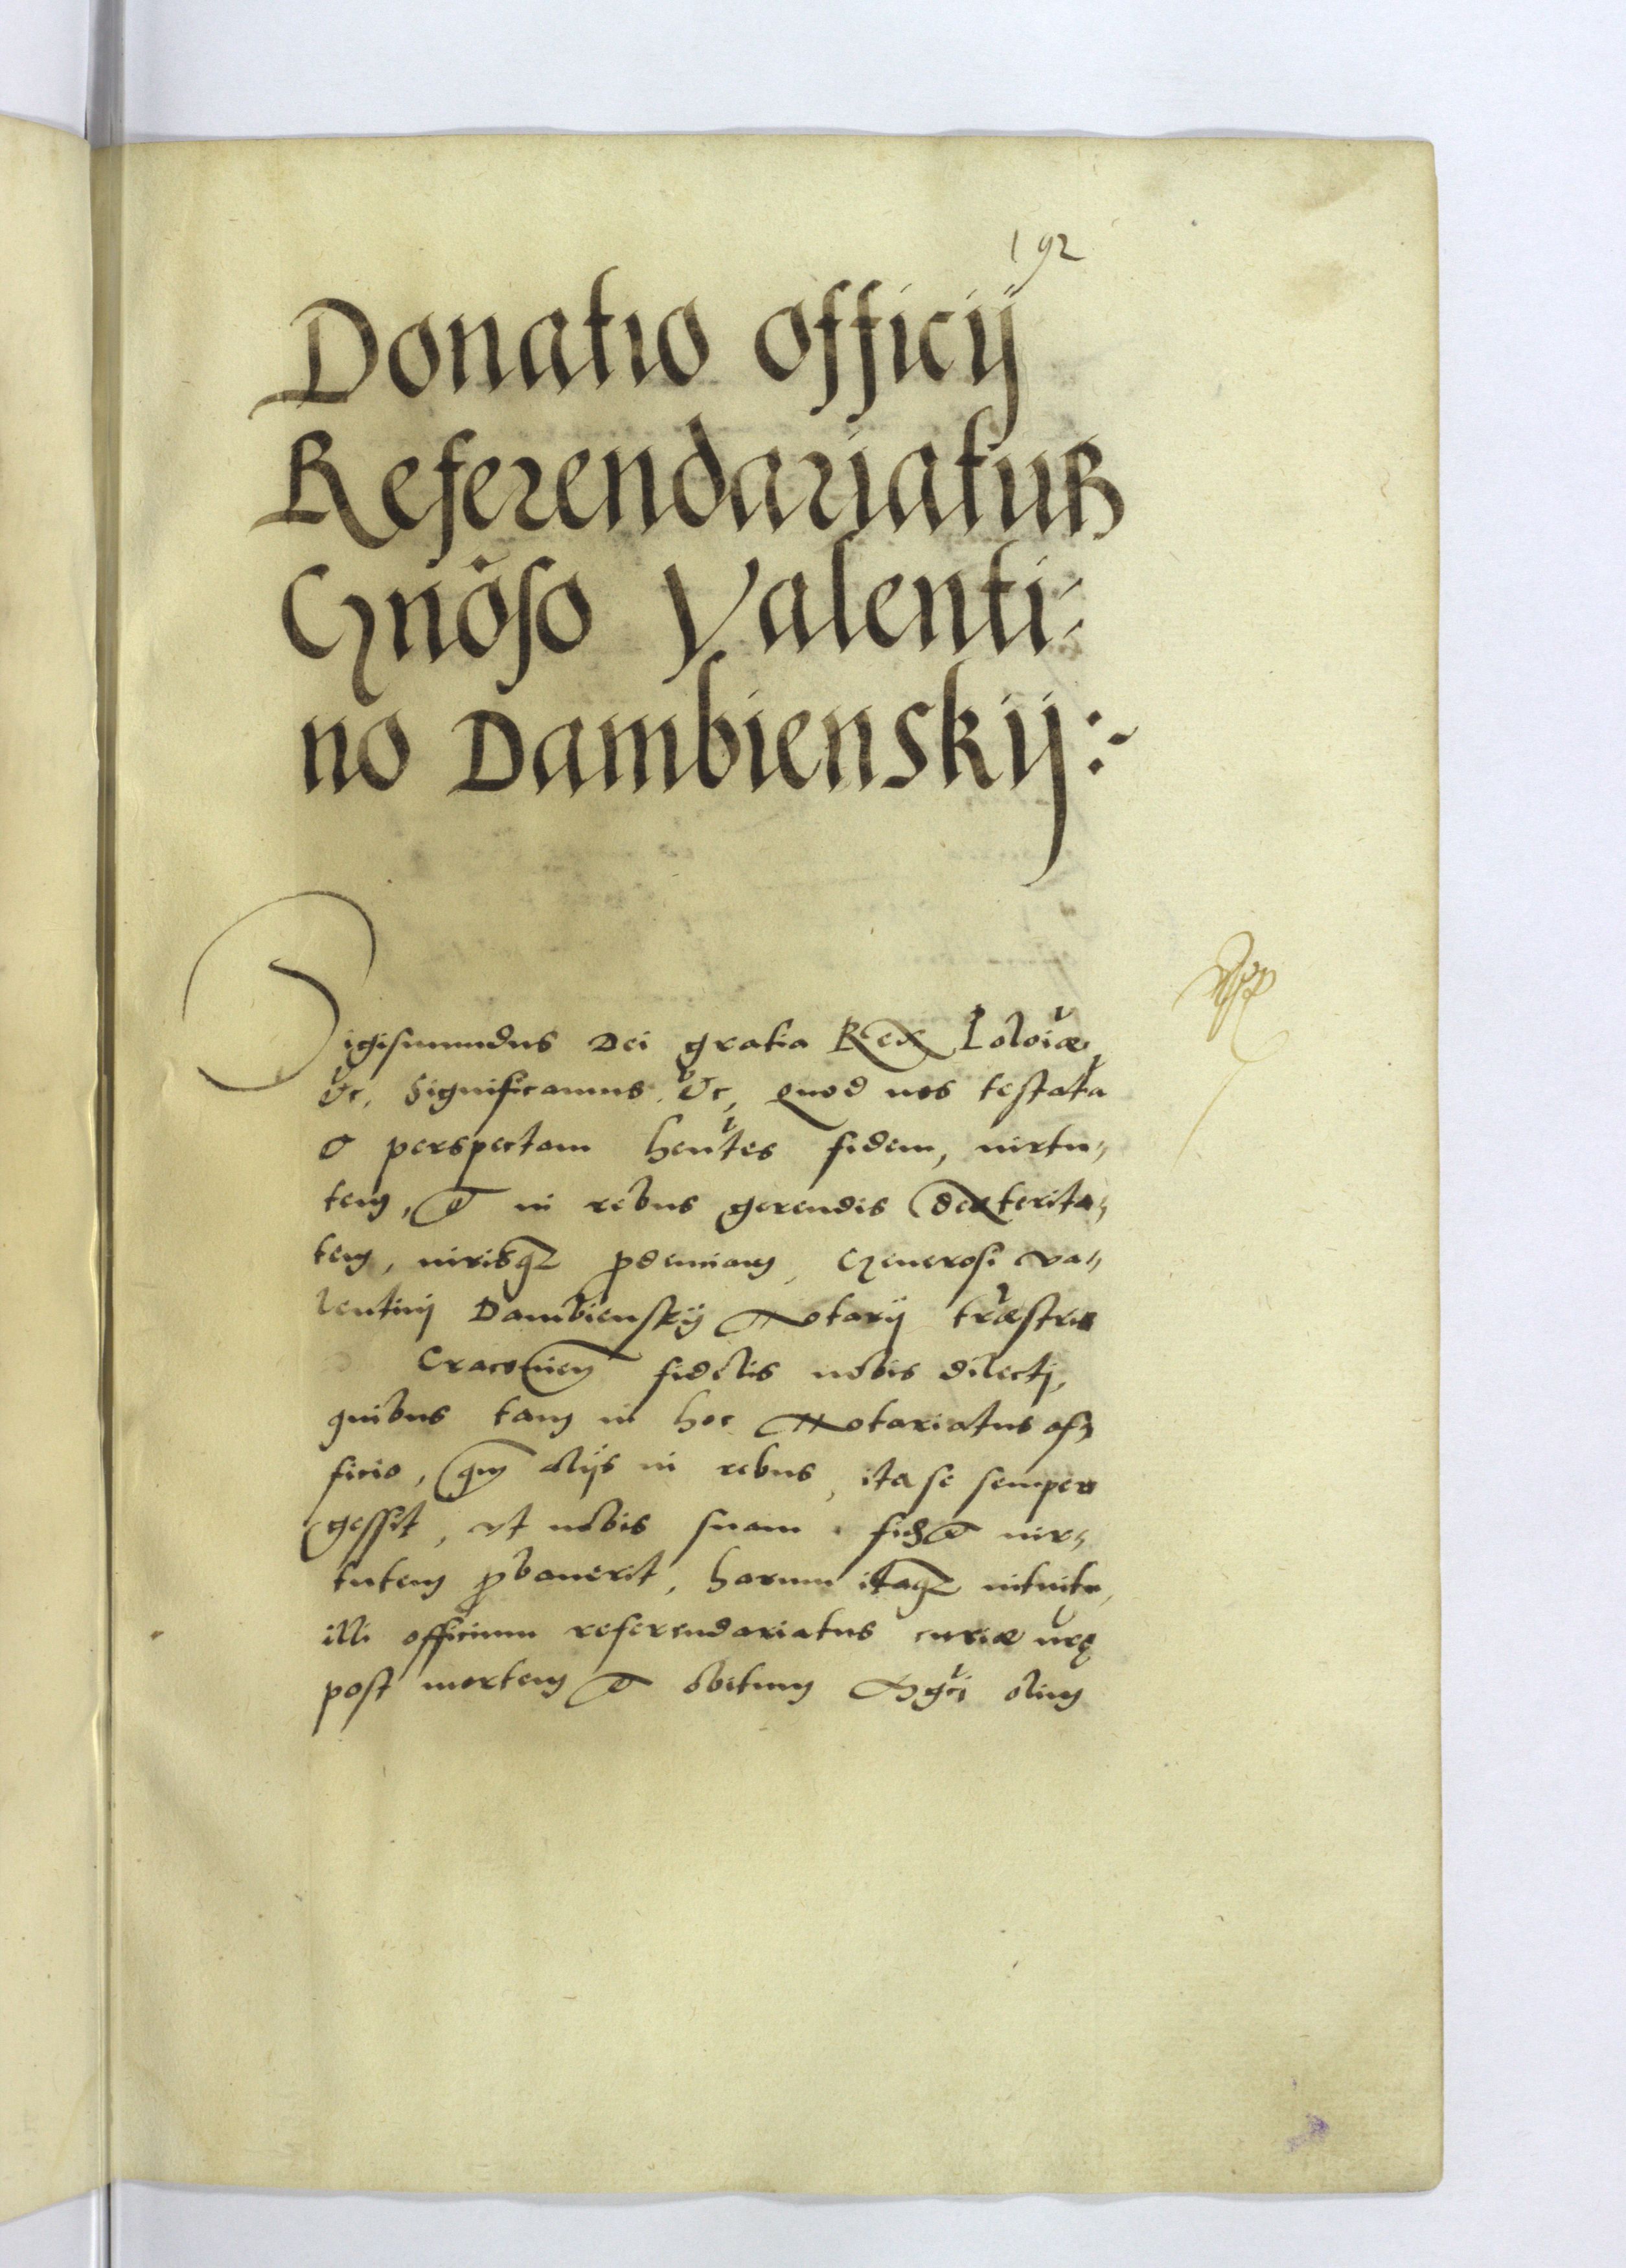 192
Donatio officij
Referendariatus
Gnõso Valenti-
no Dambienskij:~
Sigismundus Dei gratia Rex Poloĩæ
&c. Significamus &c, quod nos testatã
& perspectam hẽntes fidem, uirtu-
tem, & in rebus gerendis dexterita-
tem, iurisq prudenciam, Generosi Va-
lentinj Dambienskij Notarij træstris
Cracouien fidelis nobis dilectj,
quibus tam in hoc Notariatus of-
ficio, qm alijs in rebus, ita se semper
gessit, vt nobis suam fidẽ & uir-
tutem probauerit, harum itaq intuitu,
illi officium referendariatus curiæ nrę
post mortem & obitum Mgci olim